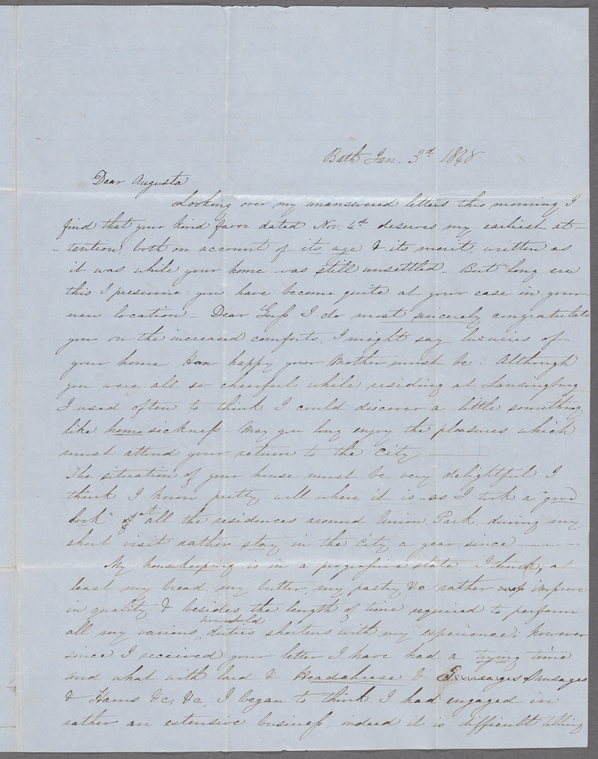 Bath Jan. 3d 1848
Dear Augusta
Looking over my unanswered letters this morning I
find that your kind favor dated Nov. 4th deserves my earliest at-
-tention, both on account of its age & its merit, written as
it was while your home was still unsettled. But long ere
this I presume you have become quite at your ease in your
new location. Dear Guss I do most sincerely congratulate
you on the increased comforts, I might say luxuries of
your home How happy your Mother must be! Although
you were all so cheerful while residing at Lansingburg
I used often to think I could discover a little something
like home sickness May you long enjoy the pleasures which
must attend your return to the City
The situation of your house must be very delightful I
think I know pretty well where it is as I took a "good
look" at all the residences around Union Park, during my
short visit rather stay in the City a year since
My housekeeping is in a progressive state. I think, at
least my bread, my butter, my pastry &c rather improve
in quality & besides the length of time required to perform
all my various household duties shortens with my experience. However
since I received your letter I have had a trying time
and what with lard & Headcheese & Sausages
& Hams &c, &c, I began to think I had engaged in
rather an extensive business, indeed it is difficult telling